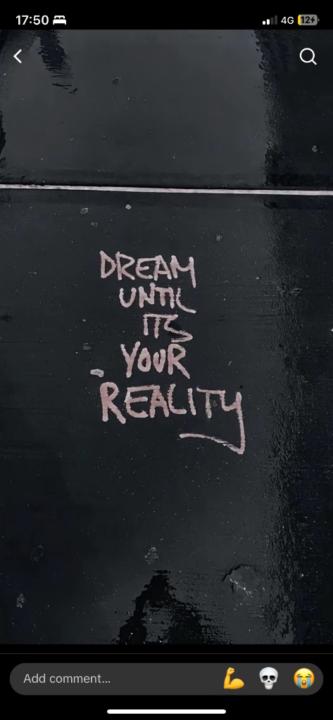 17:50
4G 12+
DREAM
UNTIL
ITS
YOUR
REALITY
Add comment...